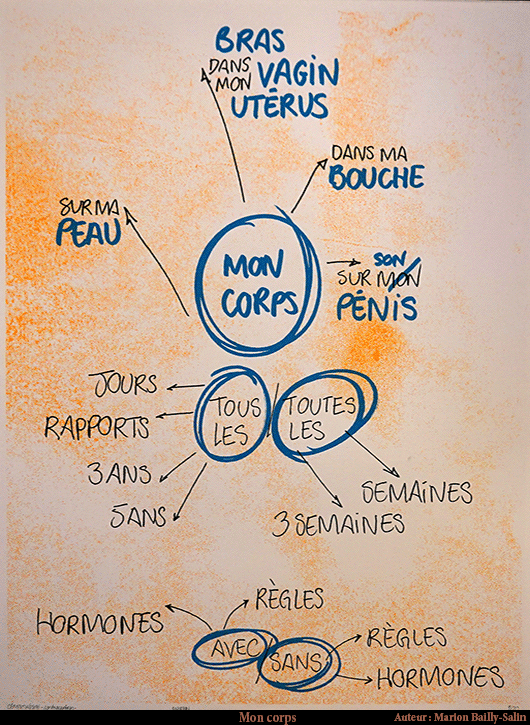 BRAS
DANS MON VAGIN
UTÉRUS
DANS MA
BOUCHE
SUR MA
PEAU
MON
CORPS
SON
SUR MON
PÉNIS
JOURS
RAPPORTS
3 ANS
5 ANS
TOUS
LES
TOUTES
LES
SEMAINES
3 SEMAINES
HORMONES
RÈGLES
AVEC
SANS
RÈGLES
HORMONES
Mon corps
Auteur : Marion Bailly-Salin